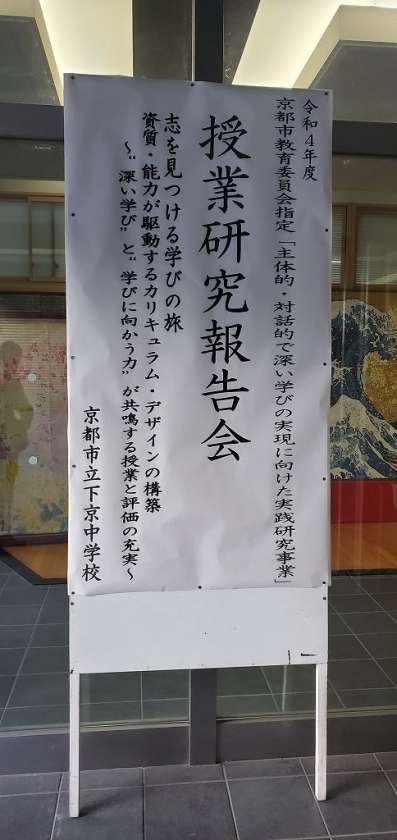 令和４年度
京都市教育委員会指定「主体的・対話的で深い学びの実現に向けた実践研究事業」
授業研究報告会
志を見つける学びの旅
資質・能力が駆動するカリキュラム・デザインの構築
～“深い学び”と“学びに向かう力”が共鳴する授業と評価の充実～
京都市立下京中学校